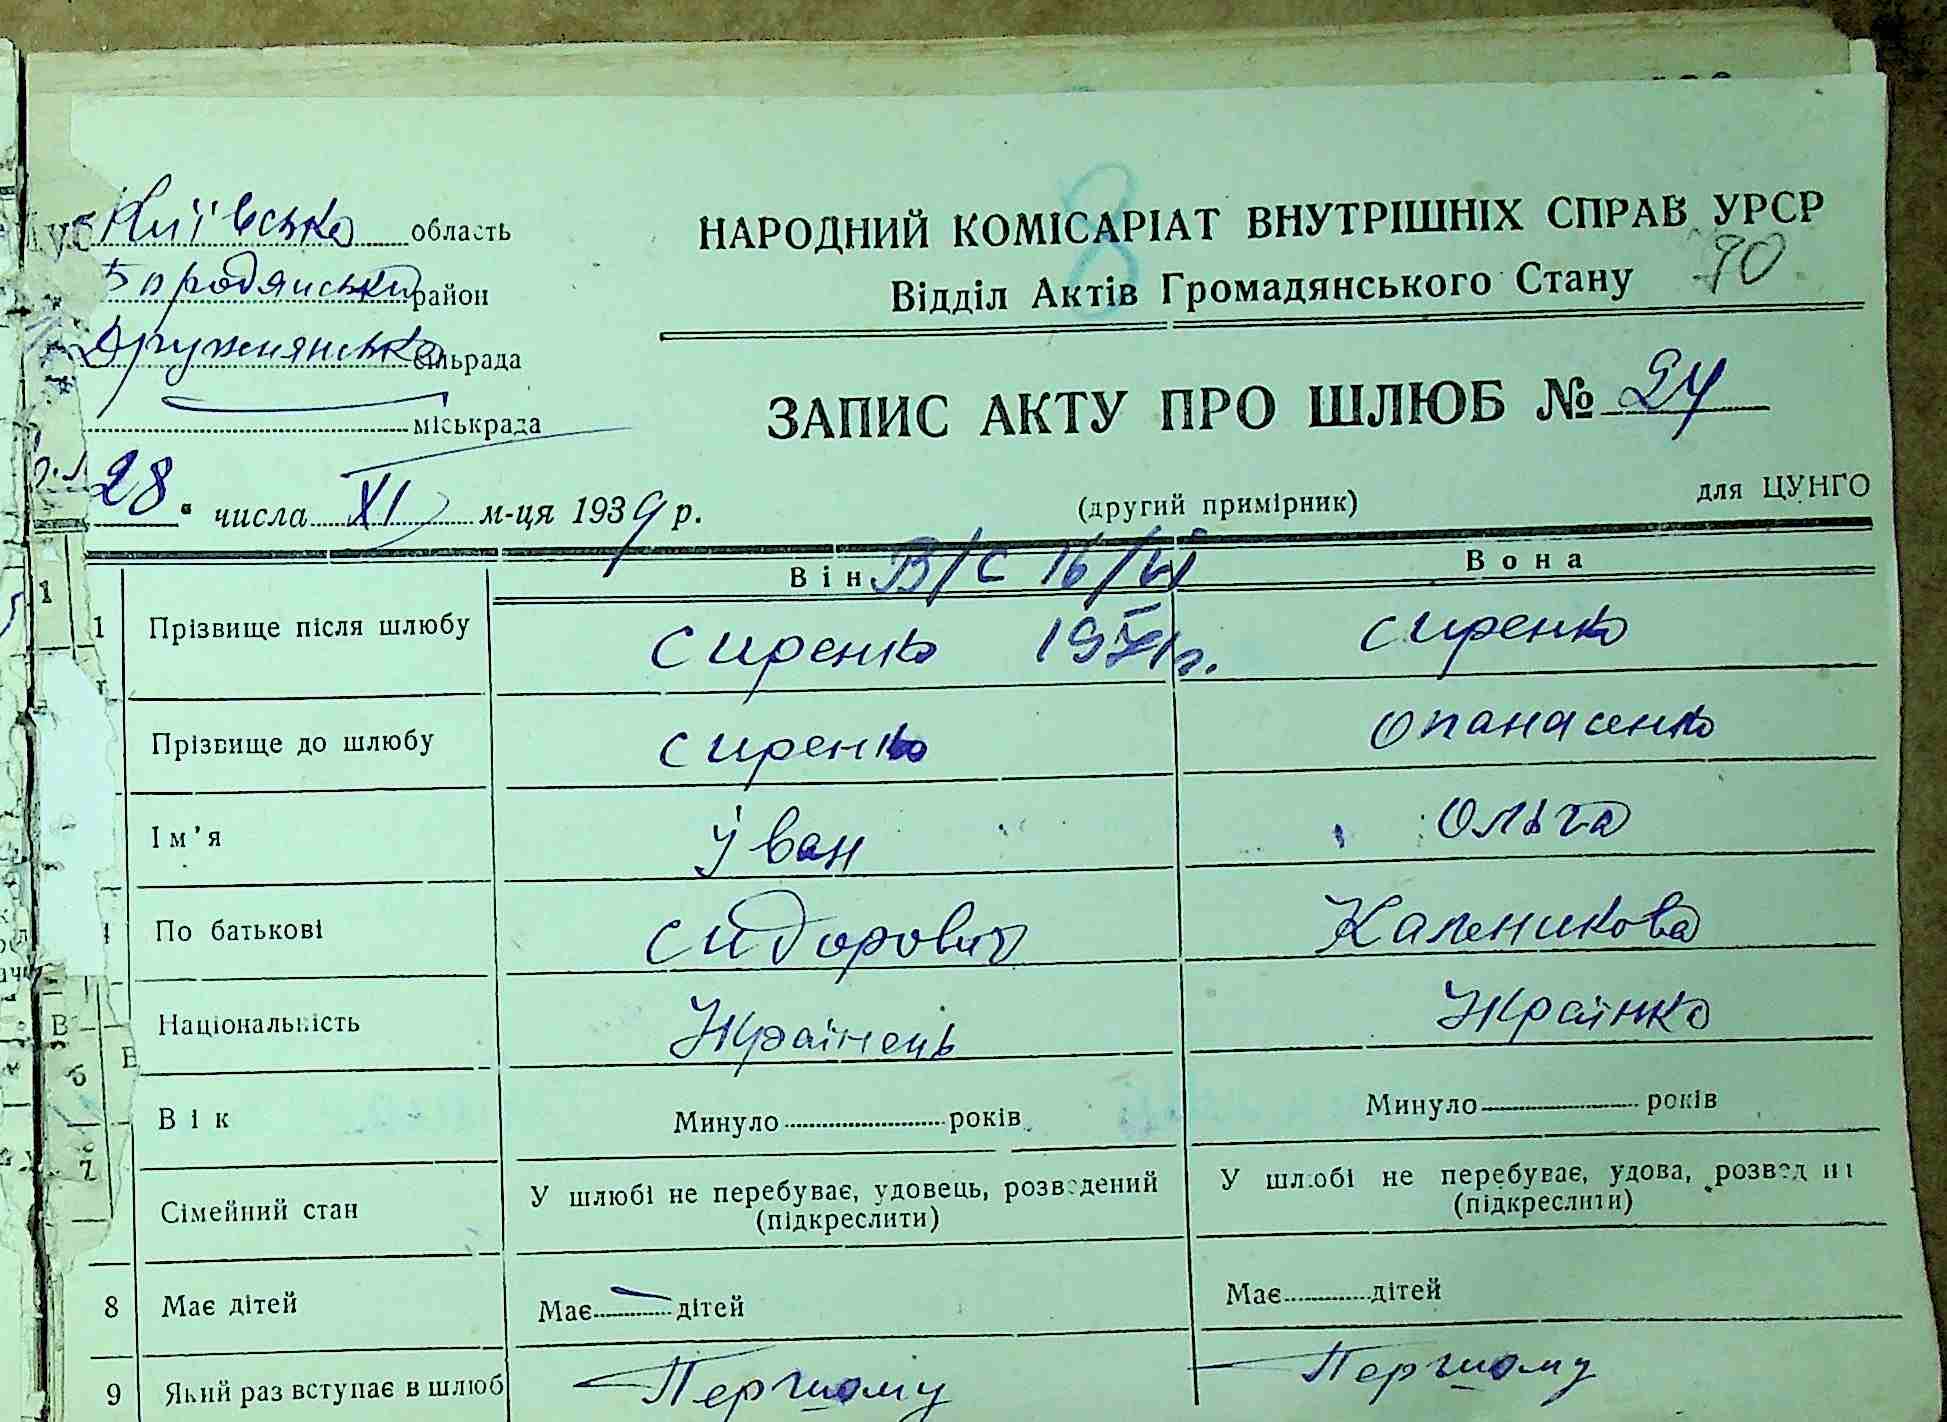 Київська область
Бородянський район
Дружнянська сільрада
міськрада
28 числа XI м-ця 1939 р.
8
НАРОДНИЙ КОМІСАРІАТ ВНУТРІШНІХ СПРАВ УРСР
Відділ Актів Громадянського Стану
ЗАПИС АКТУ ПРО ШЛЮБ № 24
(другий примірник)
для ЦУНГО
Він В/С 16/VI Вона
1 Прізвище після шлюбу Сиренко Сиренко
Прізвище до шлюбу Сиренко Опанасенко
Ім'я Іван Ольга
По батькові Сидорович Каленикова
Національність Українець Українка
Вік Минуло років Минуло років
Сімейний стан У шлюбі не перебуває, удовець, розведений У шлюбі не перебуває, удова,
(підкреслити) (підкреслити)
8 Має дітей Має — дітей Має дітей
9 Який раз вступає в шлюб Першому Першому